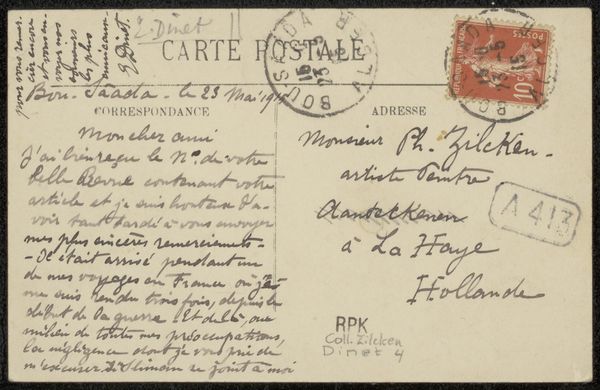 E. Dinet
CARTE POSTALE
Bou-Saada le 23 Mai 1915
CORRESPONDANCE
Mon cher ami
J'ai bien reçu le Nº de votre
belle Revue contenant votre
article et je suis honteux d'a-
voir tant tardé à vous envoyer
mes plus sincères remerciements-
- Il était arrivé pendant un
de mes voyages en France où je
me suis rendu trois fois, depuis le
début de la guerre. Et de là, au
milieu de toutes mes préoccupations,
la négligence dont je vous prie de
m'excuser. Sliman se joint à moi
pour vous remer-
cier encore
et vous en-
voyer nos
les plus
E Dinet.
ADRESSE
Monsieur Ph. Zilcken-
artiste Peintre
à La Haye
Hollande
BOU-SAADA
15 5
23 - 5
15
ALGER
POSTES
10
A 413
RPK
Coll. Zilcken
Dinet 4